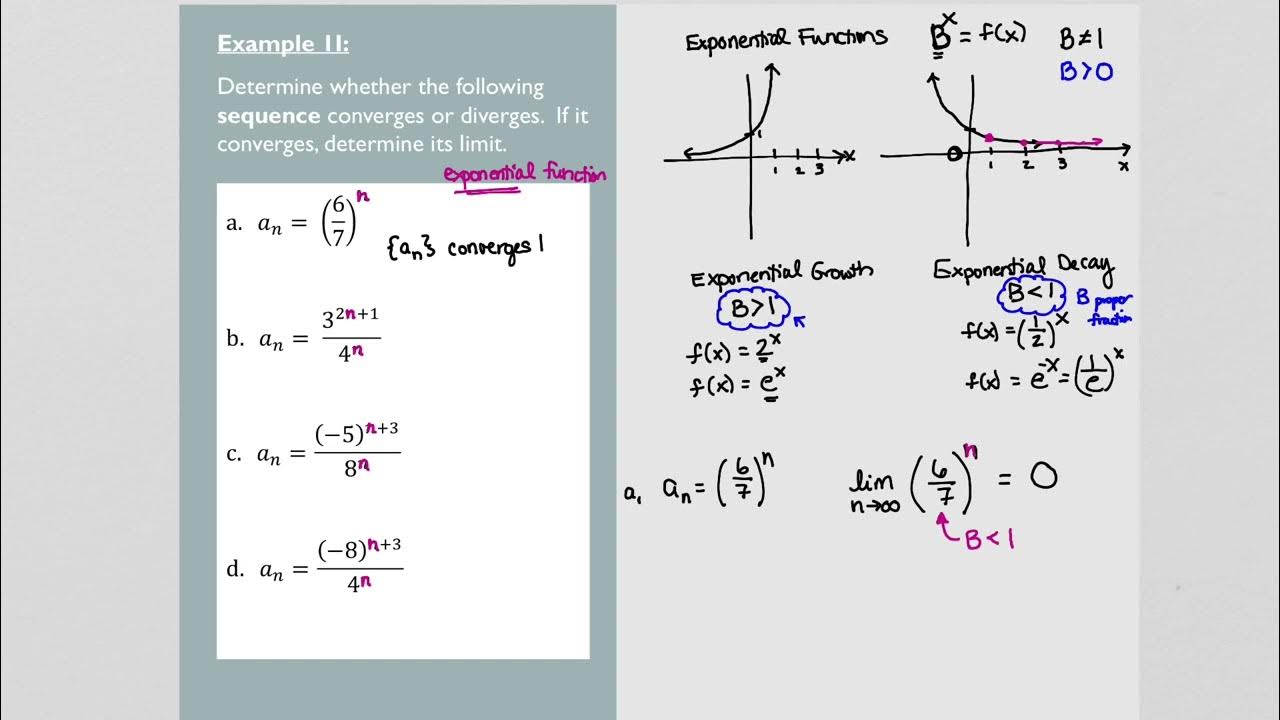 Example 11:
Determine whether the following
sequence converges or diverges. If it
converges, determine its limit.
exponential function
a. aₙ = (6/7)ⁿ
{aₙ} converges |
b. aₙ = 3²ⁿ⁺¹/4ⁿ
c. aₙ = (−5)ⁿ⁺³/8ⁿ
d. aₙ = (−8)ⁿ⁺³/4ⁿ
Exponential Functions
Bˣ = f(x) B ≠ 1
B > 0
1
1 2 3 x
1 2 3 x
Exponential Growth
B > 1
f(x) = 2ˣ
f(x) = eˣ
Exponential Decay
B < 1 B proper
fraction
f(x) = (1/2)ˣ
f(x) = e⁻ˣ = (1/e)ˣ
a. aₙ = (6/7)ⁿ
lim n→∞ (6/7)ⁿ = 0
B < 1